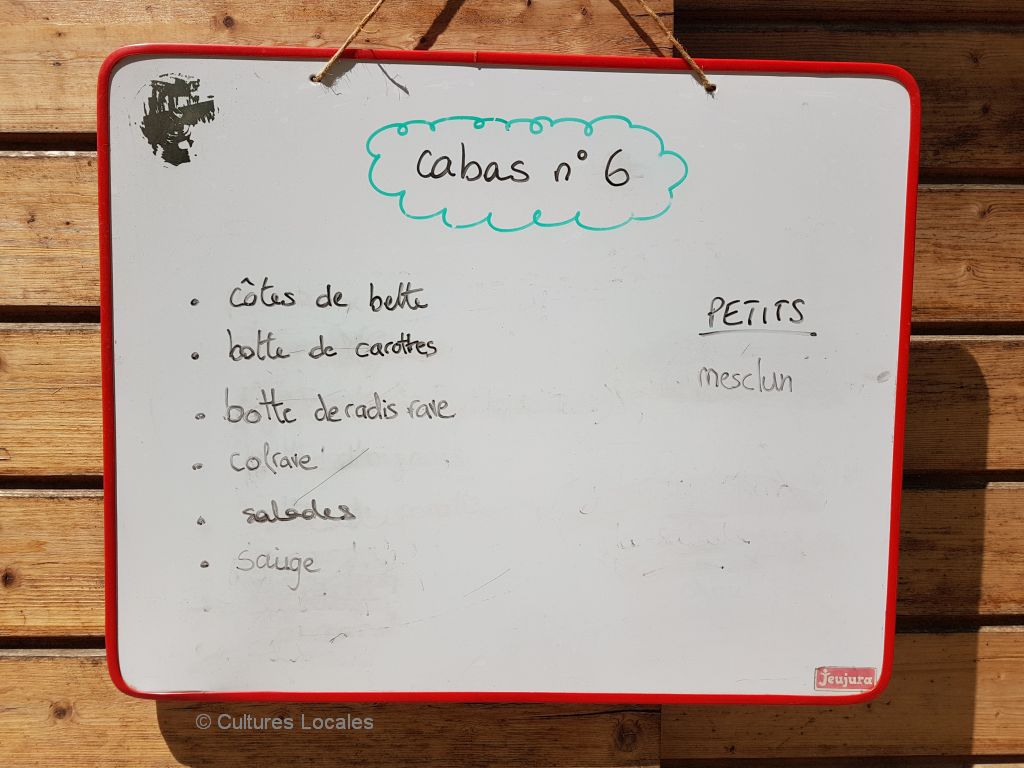 cabas n° 6
• côtes de bette
• botte de carottes
• botte de radis rave
• colrave
• salades
• sauge
PETITS
mesclun
Jeujura
© Cultures Locales